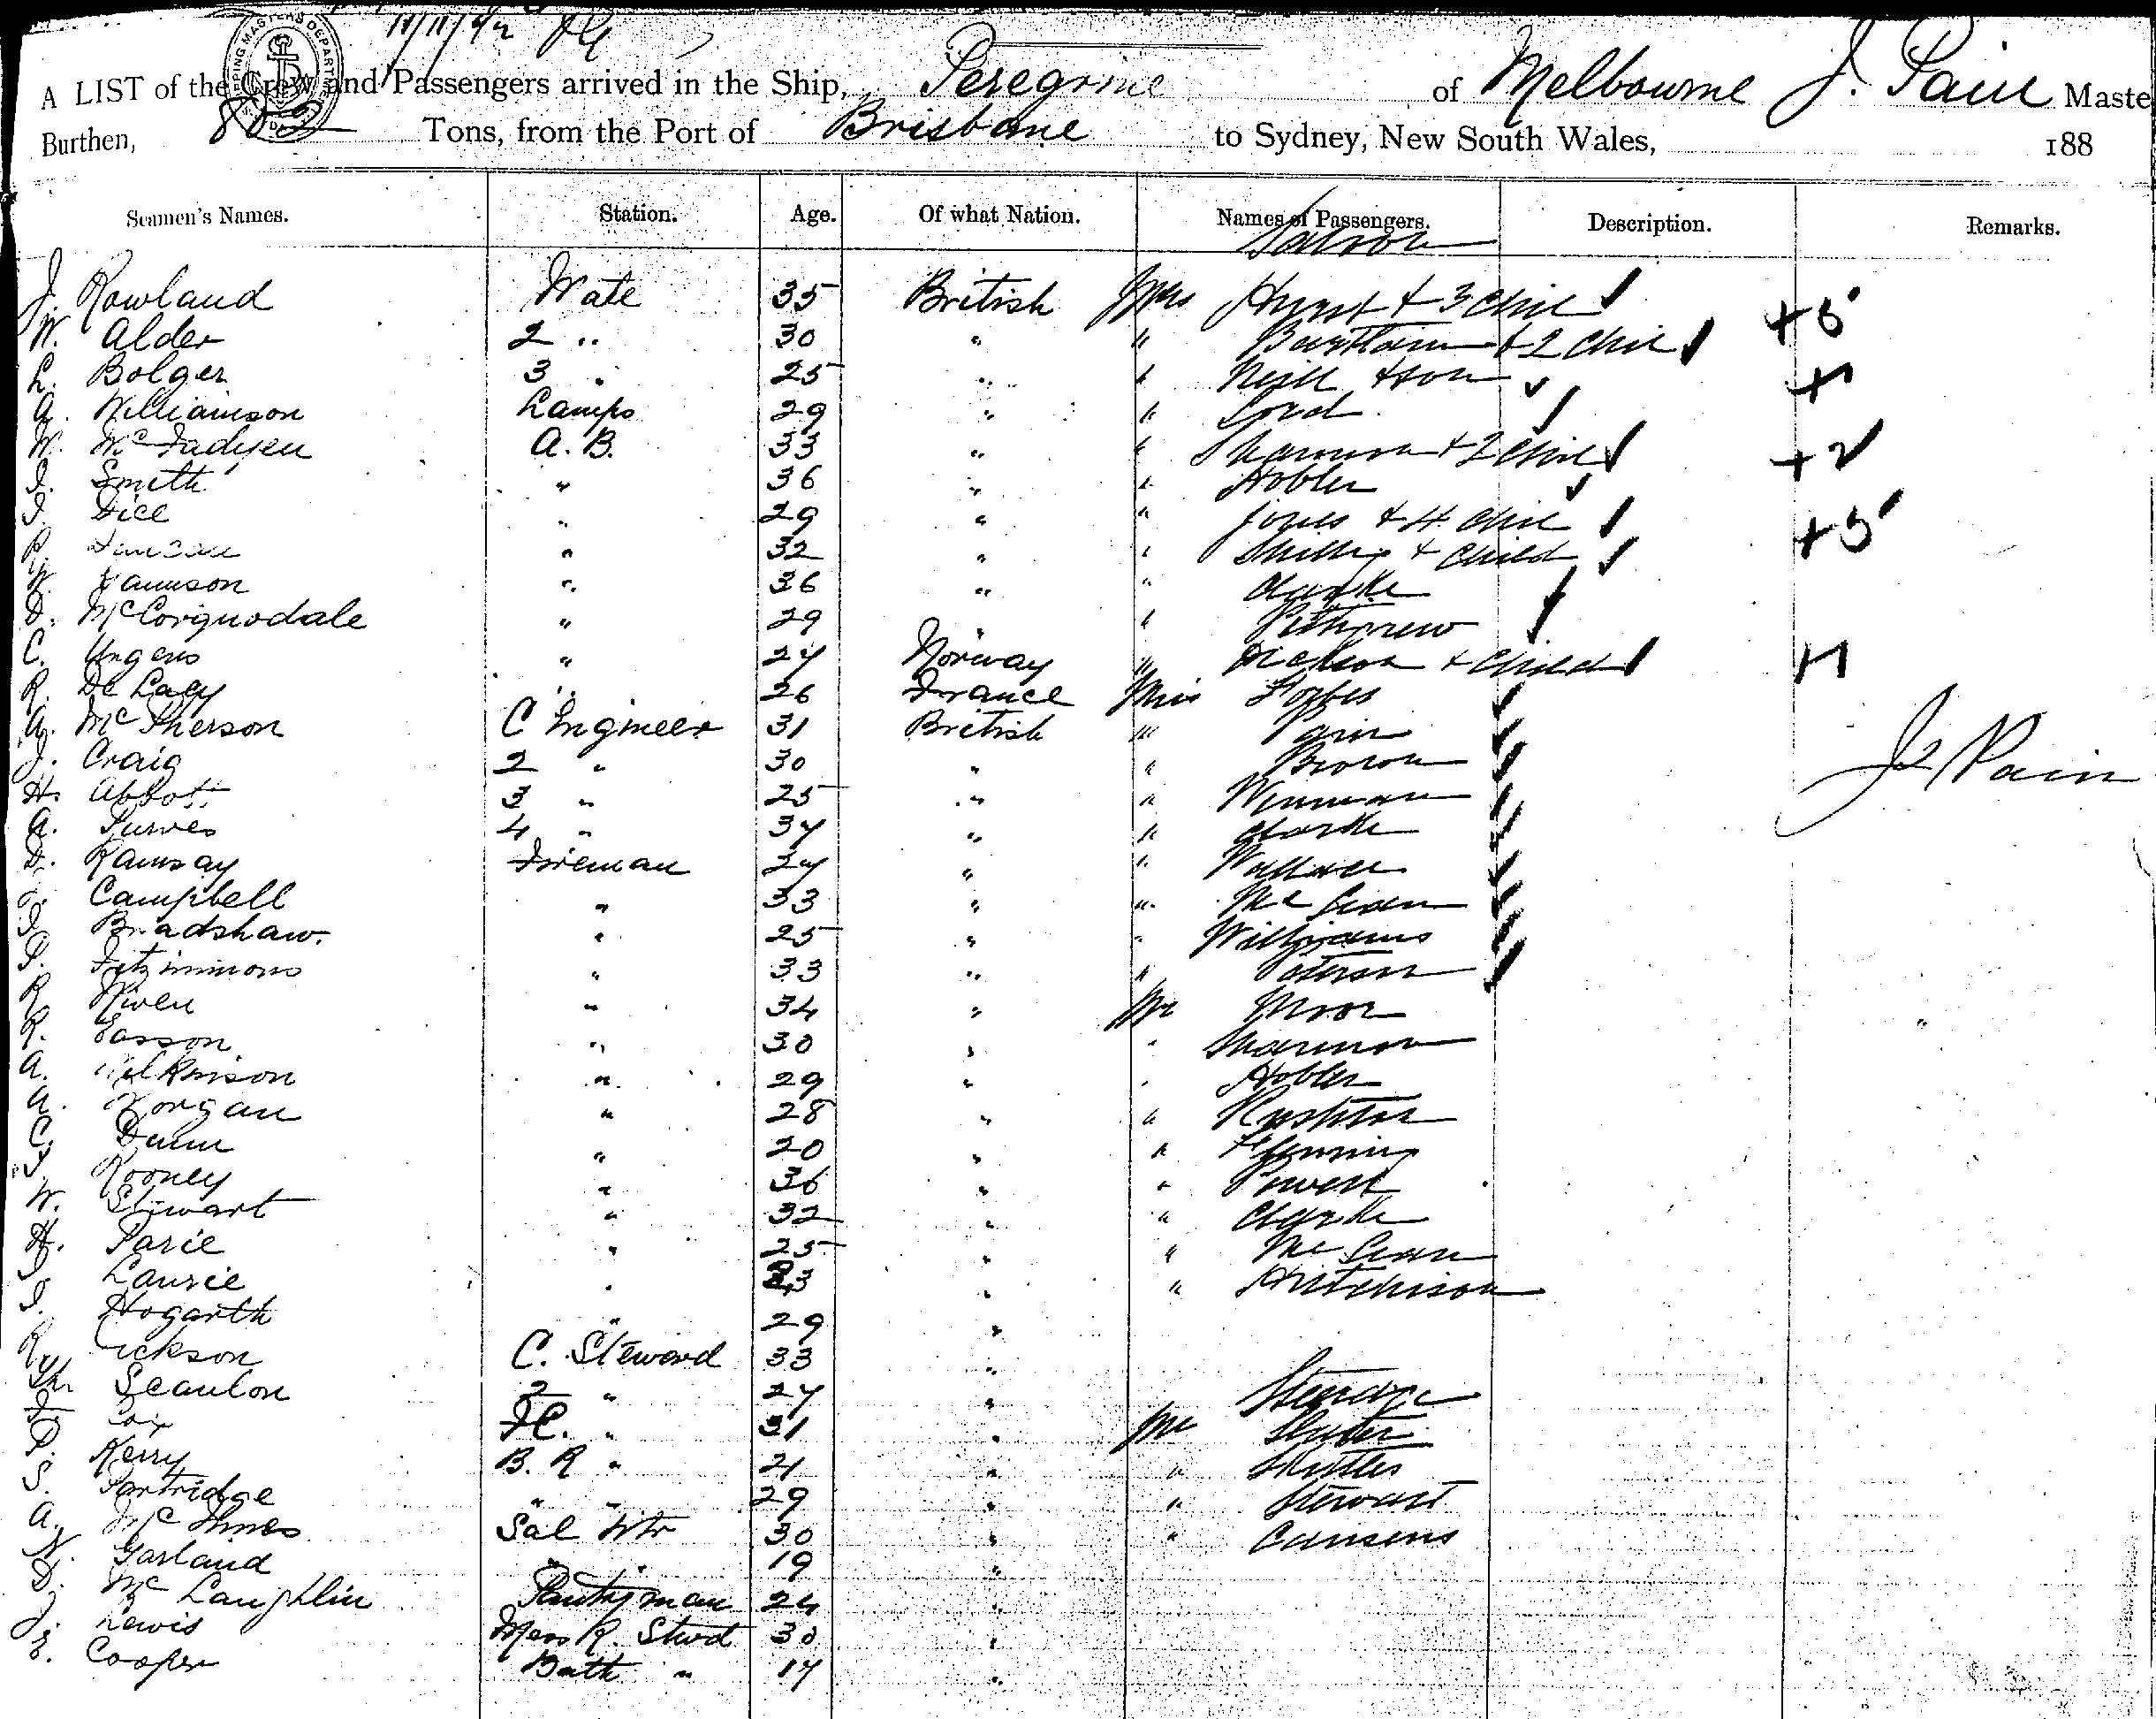 11/11/92
SHIPPING MASTERS DEPARTMENT
A LIST of the Crew and Passengers arrived in the Ship, Peregrine of Melbourne J. Pain Maste
Burthen, Tons, from the Port of Brisbane to Sydney, New South Wales, 188
Seamen's Names. Station. Age. Of what Nation. Names of Passengers. Description. Remarks.
Saloon
J. Rowland Mate 35 British Mrs Hurst + 3 Chil +5
W. Alder 2 " 30 " " + 2 Chil
L. Bolger 3 " 25 " " Neill + son +1
A. Williamson Lamps 29 " " Lord
W. McFadyen A. B. 33 " " Shannon + 2 Chil +2
J. Smith " 36 " " Hobler
J. Dice " 29 " " Jones + 4 Chil +5
R. Duncan " 32 " " + Child
W. Jamison " 36 " " Clarke
D. McCorquodale " 29 " " Pettigrew
C. Ungers " 27 Norway " Dickson + Child +1
R. De Lacy " 26 France Miss Forbes
A. McPherson C Engineer 31 British " Pain
J. Craig 2 " 30 " " Brown J Pain
H. Abbott 3 " 25 " "
A. Purves 4 " 37 " " Clarke
D. Ramsay Fireman 27 " " Wallace
Campbell " 33 " " McLean
J. Bradshaw " 25 " " Williams
P. Fitzimmons " 33 " " Paterson
R. Niven " 34 " Mr Moor
R. Easson " 30 " " Shannon
A. Wilkinson " 29 " " Hobler
A. Morgan " 28 " " Rushton
C. Dunn " 20 " " Flemming
J. Rooney " 36 " " Powell
W. Stewart " 32 " " Clarke
H. Parie " 25 " " McLean
Laurie " 33 " " Hutchison
J. Hogarth " 29 "
R. Dickson C. Steward 33 "
Scanlon 2 " 27 " Steerage
J. Cox F.C. " 31 " Mr Slater
P. Kerry B. R " 21 " " Skittles
S. Partridge " " 29 " " Stewart
A. McInnes Sal Wtr 30 " " Cansens
N. Garland " " 19 "
D. McLaughlin Pantryman 24 "
J. Lewis Mess R. Stwd 30 "
E. Cooper Bath " 17 "